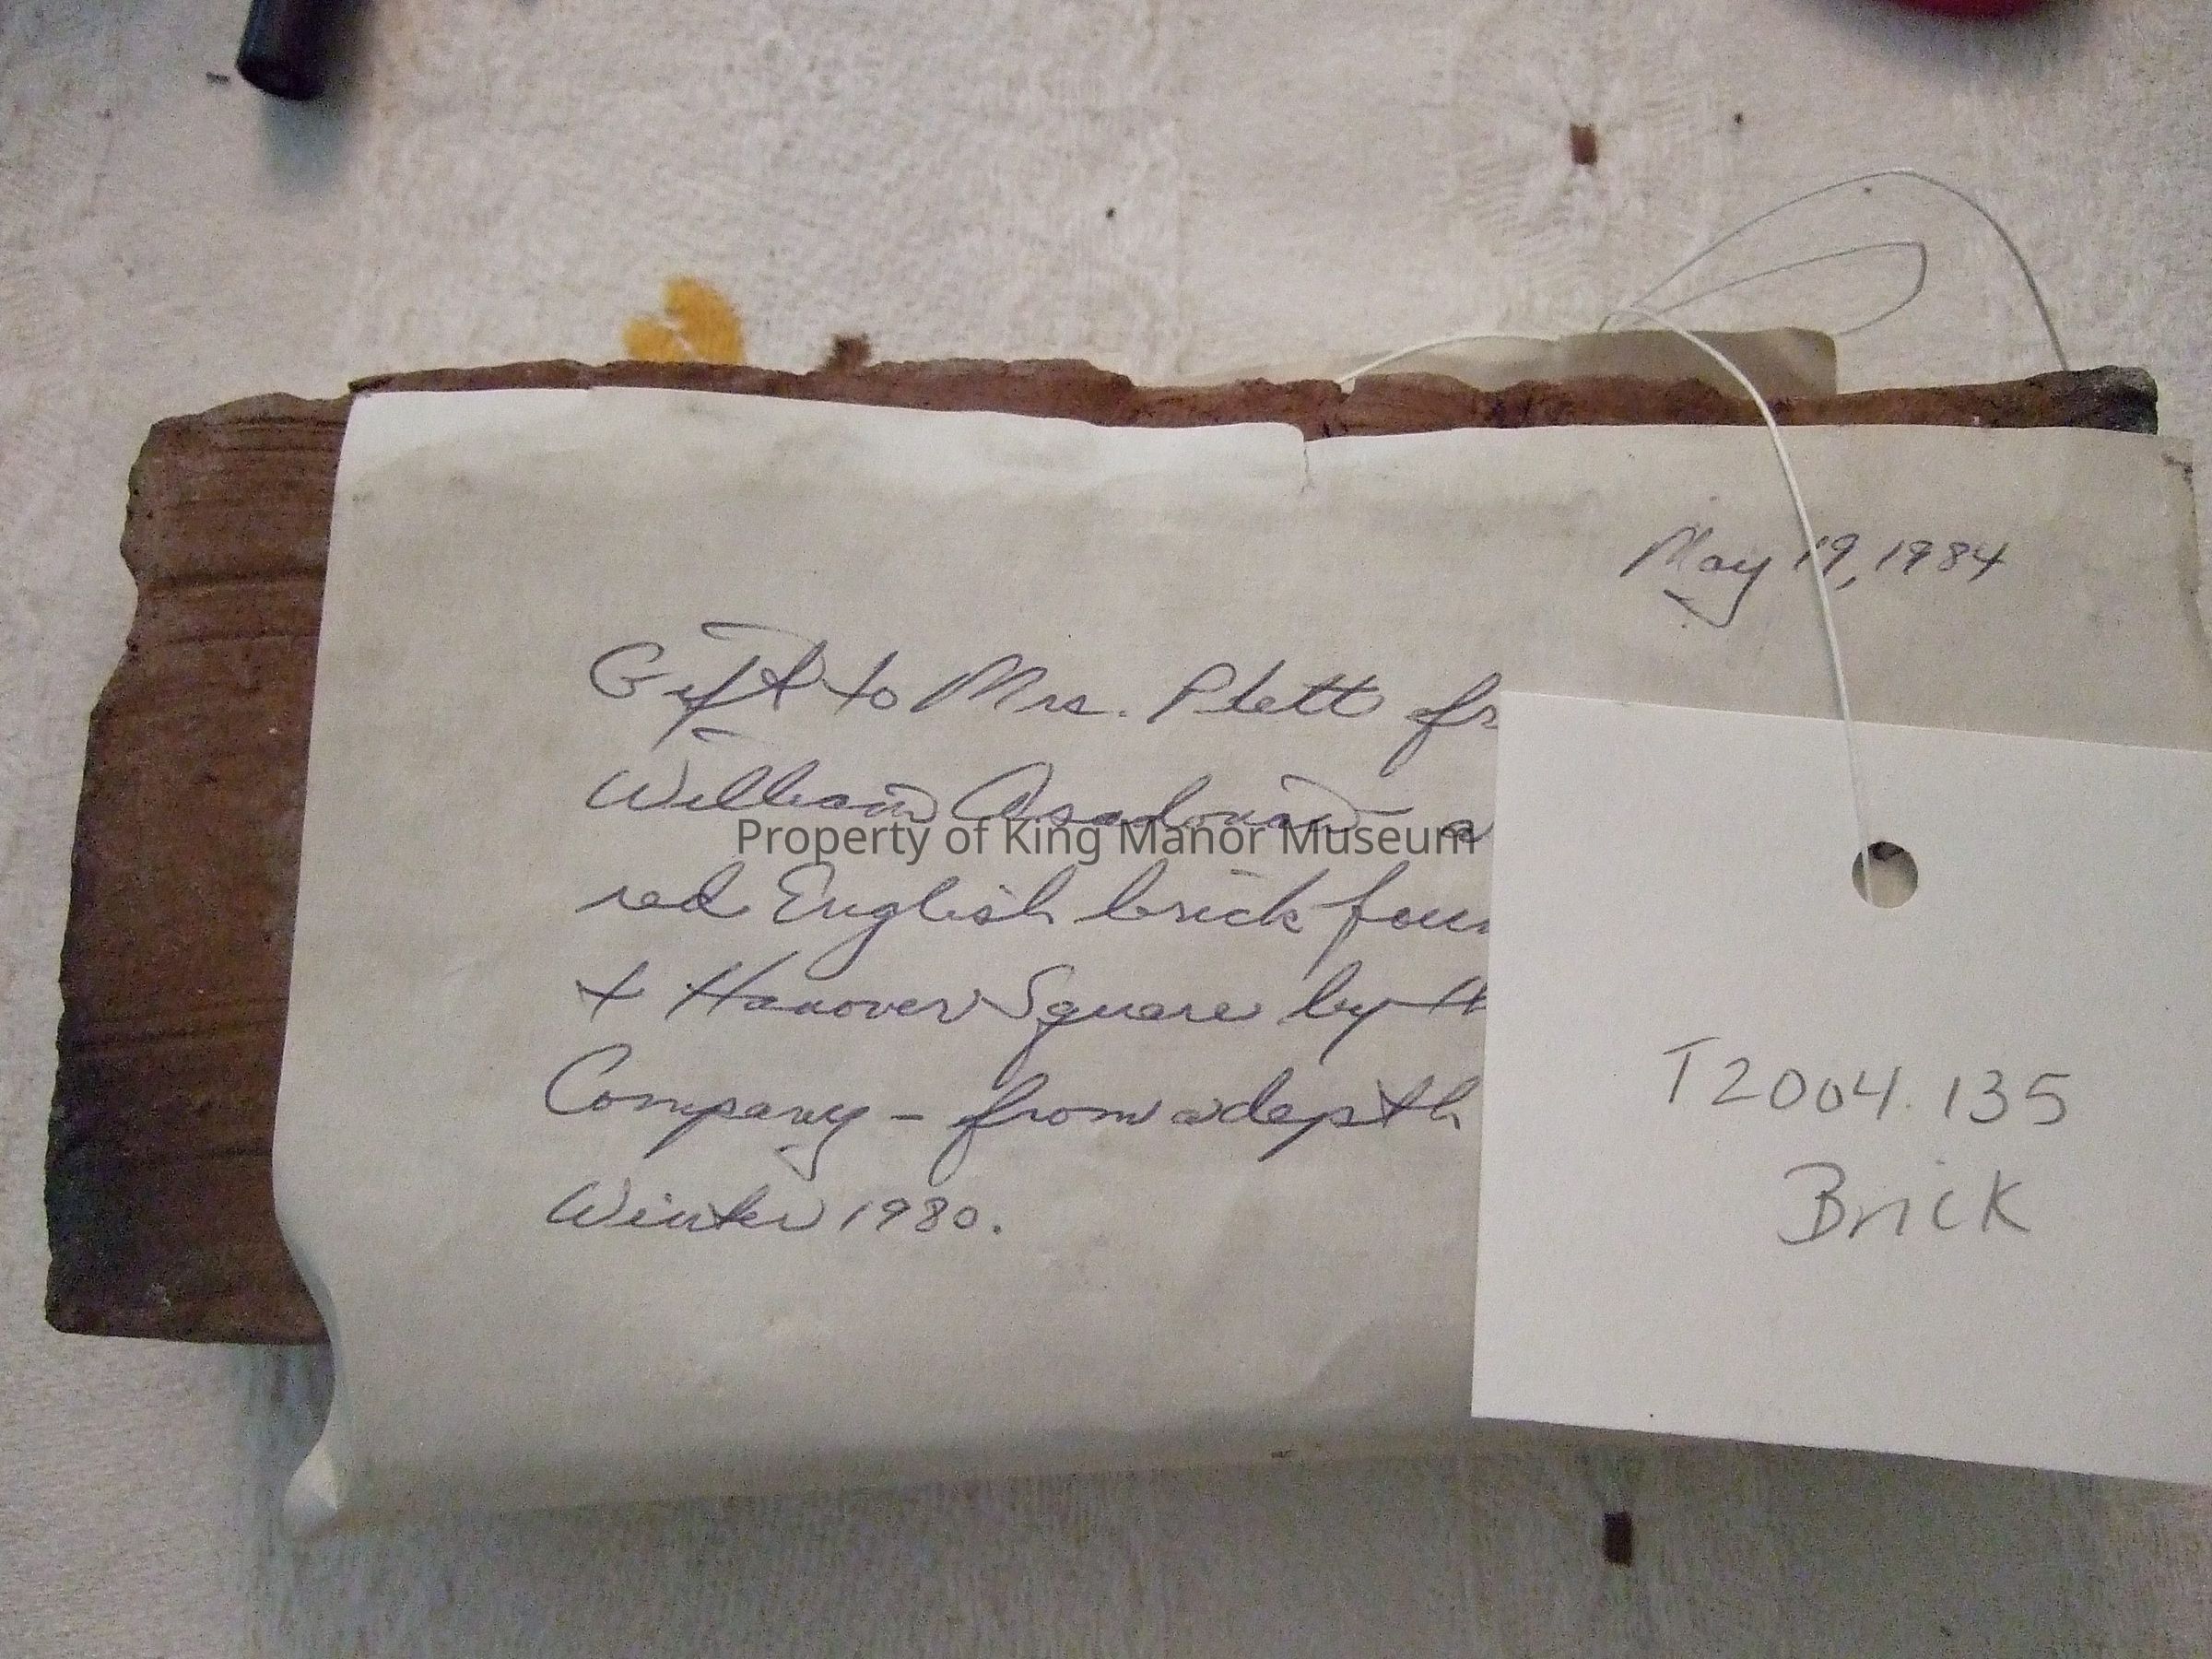 May 19, 1984
Gift to Mrs. Plett fr
William Asadorian - a
red English brick foun
+ Hanover Square by th
Company - from a depth
Winter 1980.
Property of King Manor Museum
T2004.135
Brick